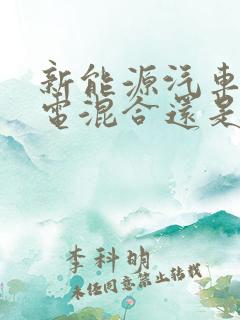 新能源汽車
電混合還是
李科明
未经同意禁止转载